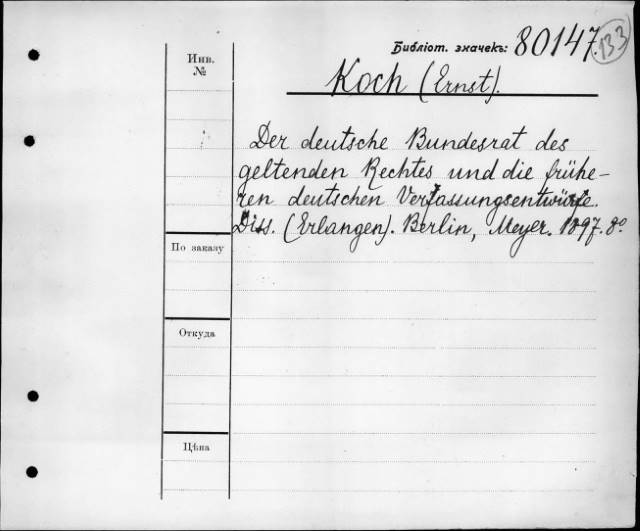 Библіот. значекъ: 80147. 133
Инв.
№
Koch (Ernst).
Der deutsche Bundesrat des
geltenden Rechtes und die frühe-
ren deutschen Verfassungsentwürfe.
Diss. (Erlangen). Berlin, Meyer. 1897. 8°
По заказу
Откуда
Цѣна